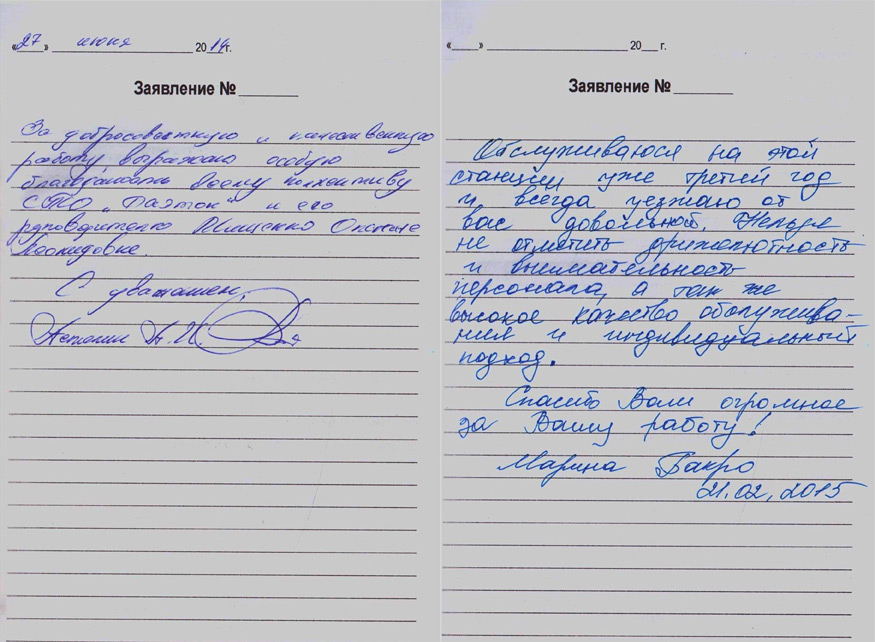 «27» июня 2014г.
Заявление №
За добросовестную и качественную
работу выражаю особую
благодарность всему коллективу
СТО "Фаэтон" и его
руководителю Оксане
Леонидовне.
С уважением,
А. И.
«  »  20  г.
Заявление №
Обслуживаюся на этой
станции уже третий год
и всегда уезжаю от
вас довольной. Нельзя
не отметить дружелюбность
и внимательность
персонала, а так же
высокое качество обслужива-
ния и индивидуальный
подход.
Спасибо Вам огромное
за Вашу работу!
Марина
21.02.2015